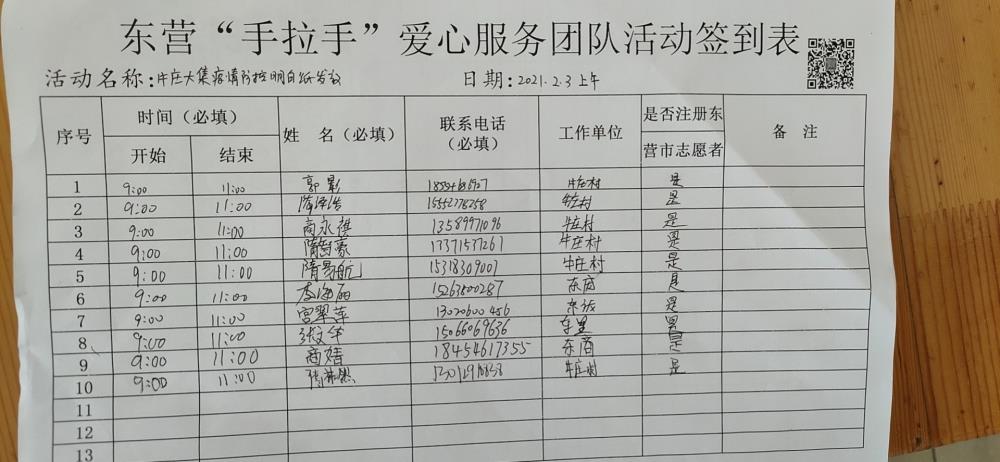 东营“手拉手”爱心服务团队活动签到表
活动名称:牛庄大集疫情防控明白纸发放 日期:2021.2.3上午
序号 时间（必填） 姓 名（必填） 联系电话（必填） 工作单位 是否注册东营市志愿者 备 注
开始 结束
1 9:00 11:00 郭影 牛庄村 是
2 9:00 11:00 15552778258 牛庄村 是
3 9:00 11:00 商永祺 13589971096 牛庄村 是
4 9:00 11:00 隋 豪 13371537267 牛庄村 是
5 9:00 11:00 隋易航 15318309007 牛庄村 是
6 9:00 11:00 李海丽 15263800287 东商 是
7 9:00 11:00 宫翠萍 13020600456 是
8 9:00 11:00 15066069636 是
9 9:00 11:00 商婧 18454617355 东商 是
10 9:00 11:00 牛庄村 是
11
12
13